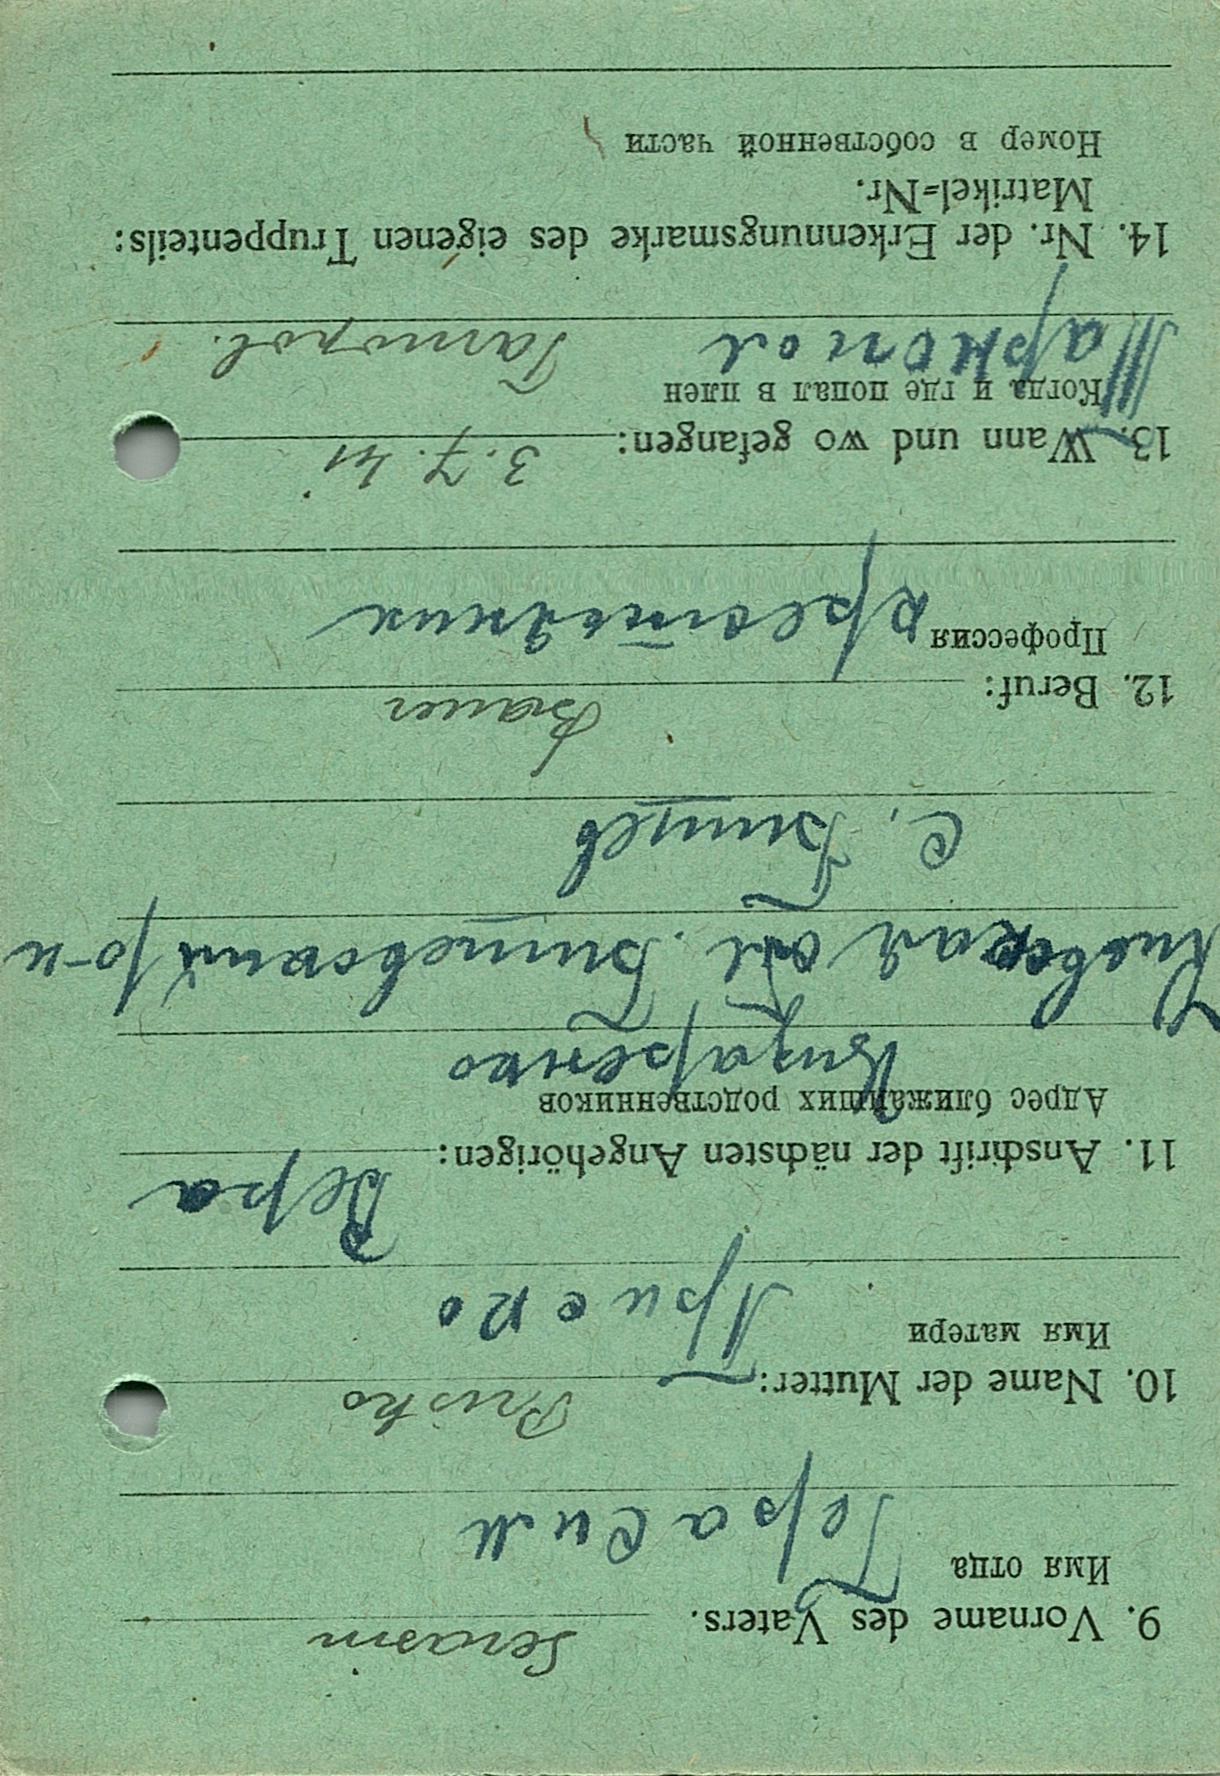 9. Vorname des Vaters.
Имя отца
Герасим
10. Name der Mutter: Prisko
Имя матери
Приско
11. Anschrift der nächsten Angehörigen: Вера
Адрес ближайших родственников
Киевская обл.
с.
12. Beruf: Bauer
Профессия
13. Wann und wo gefangen: 3.7.41
Когда и где попал в плен
Тарнопол Tarnopol.
14. Nr. der Erkennungsmarke des eigenen Truppenteils:
Matrikel=Nr.
Номер в собственной части